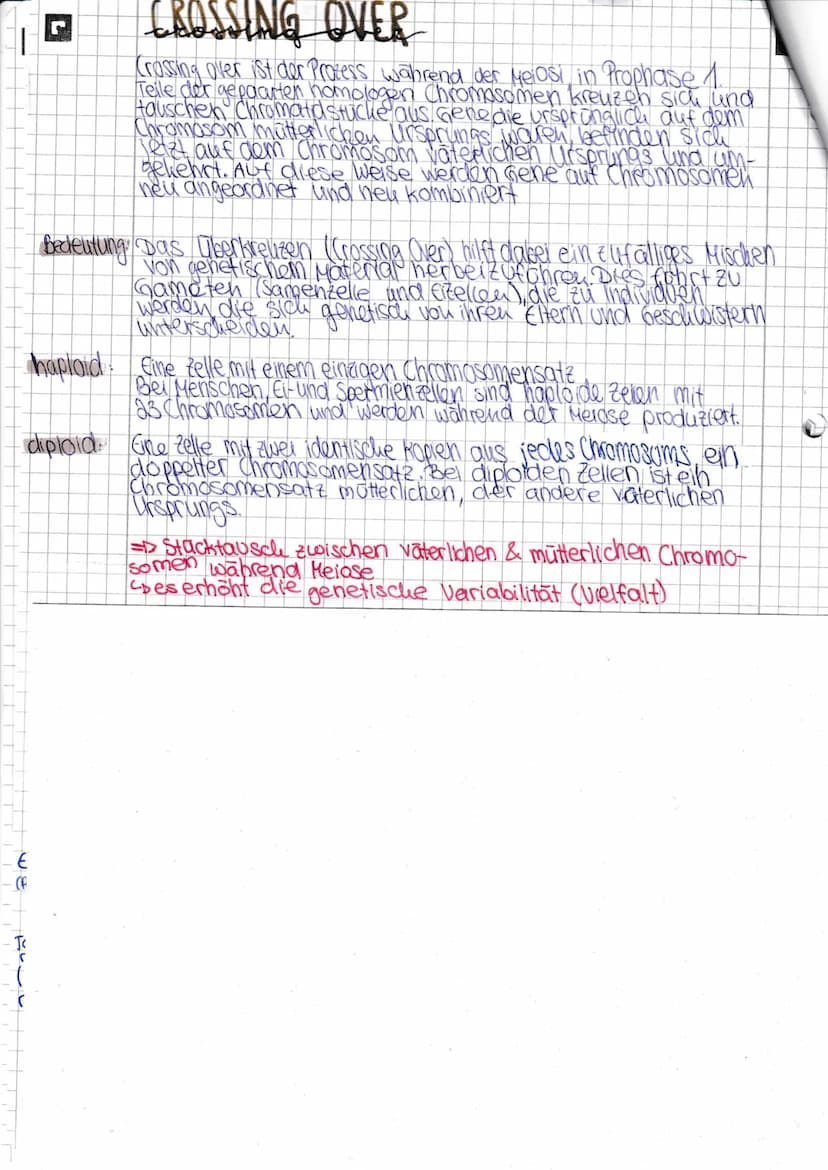 CROSSING OVER
Crossing over ist der Prozess während der Meiosi in Prophase 1.
Teile der gepaarten homologen Chromosomen kreuzen sich und
tauschen Chromatidstücke aus. Gene die ursprünglich auf dem
Chromosom mütterlichen Ursprungs waren, befinden sich
jetzt auf dem Chromosom väterlichen Ursprungs und um-
gekehrt. Auf diese Weise werden Gene auf Chromosomen
neu angeordnet und neu kombiniert
Bedeutung: Das Überkreuzen (Crossing Over) hilft dabei ein zufälliges Mischen
von genetischem Material herbeizuführen. Dies führt zu
Gameten (Samenzelle und Eizellen), die zu Individuen
werden, die sich genetisch von ihren Eltern und Geschwistern
unterscheiden.
haploid: Eine Zelle mit einem einzigen Chromosomensatz
Bei Menschen, Ei- und Spermienzellen sind haploide Zellen mit
23 Chromosomen und werden während der Meiose produziert.
diploid: Eine Zelle mit zwei identische Kopien aus jedes Chromosoms, ein
doppelter Chromosomensatz. Bei diploiden Zellen ist ein
Chromosomensatz mütterlichen, der andere väterlichen
Ursprungs.
=> Stücktausch zwischen väterlichen & mütterlichen Chromo-
somen während Meiose
↳ es erhöht die genetische Variabilität (Vielfalt)